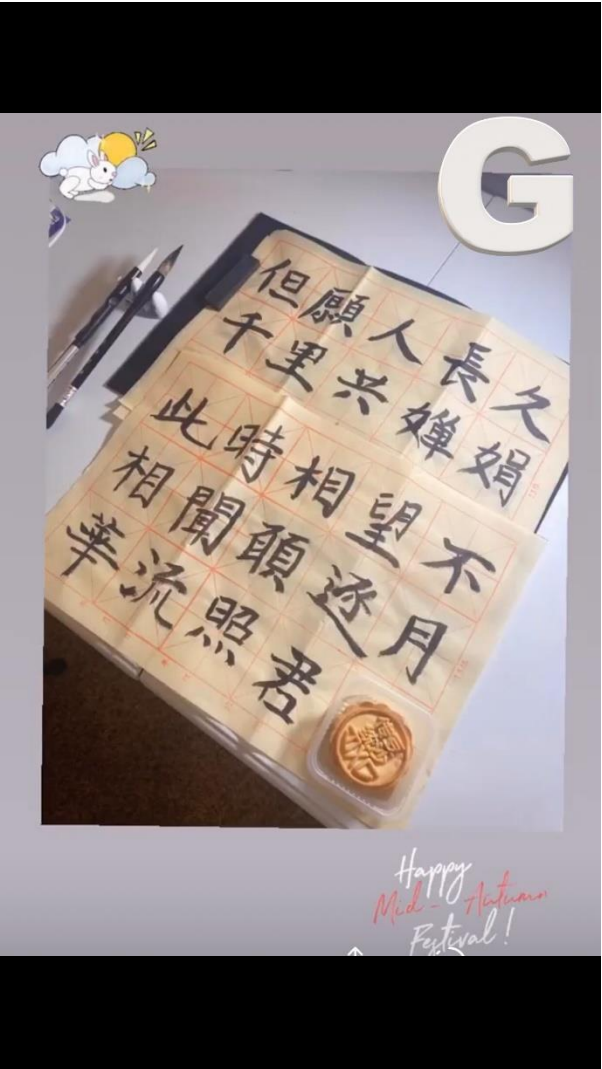 G
但願人長久
千里共嬋娟
此時相望不
相聞願逐月
華流照君
Happy
Mid-Autumn
Festival!